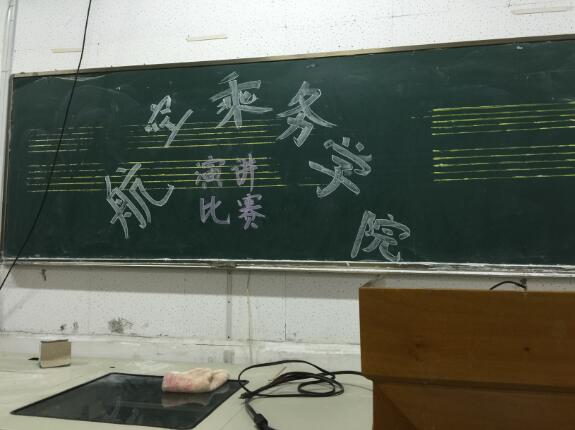 航空乘务学院
演讲
比赛